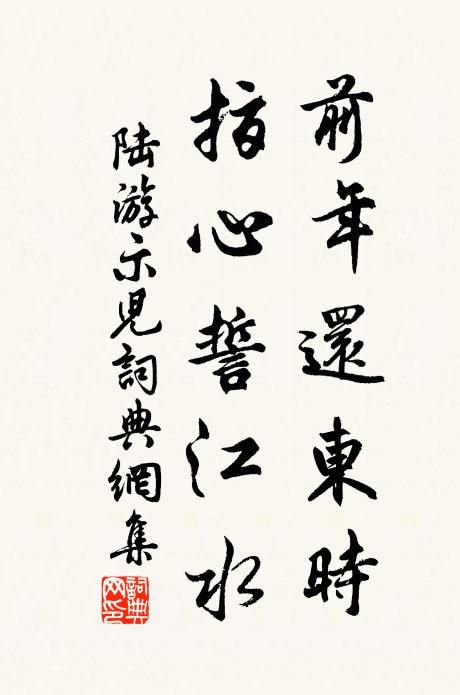 前年還東時
指心誓江水
陸游示兒詞典網集
詞典网印